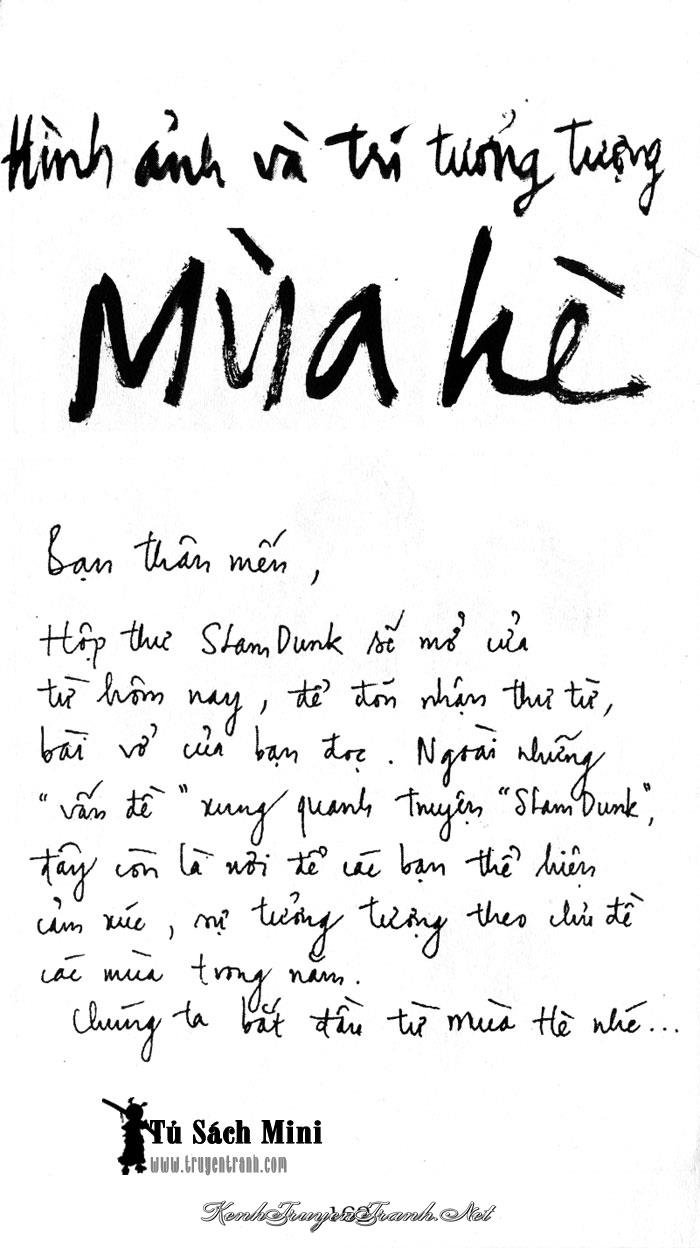 Hình ảnh và trí tưởng tượng
Mùa hè
Bạn thân mến,
Hộp thư SlamDunk sẽ mở cửa
từ hôm nay, để đón nhận thư từ,
bài vở của bạn đọc. Ngoài những
"vấn đề" xung quanh truyện "SlamDunk",
đây còn là nơi để các bạn thể hiện
cảm xúc, sự tưởng tượng theo chủ đề
các mùa trong năm.
Chúng ta bắt đầu từ mùa Hè nhé...
Tủ Sách Mini
www.truyentranh.com
KenhTruyenTranh.Net